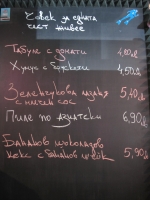 Човек за едната
чест живее
Табуле с домати 4,80лв
Хумус с брускети 4,50лв
Зеленчукова
с сос 5,40лв
Пиле по азиатски 6,90лв
Бананов шоколадов
кекс с бананов шейк 5,90лв